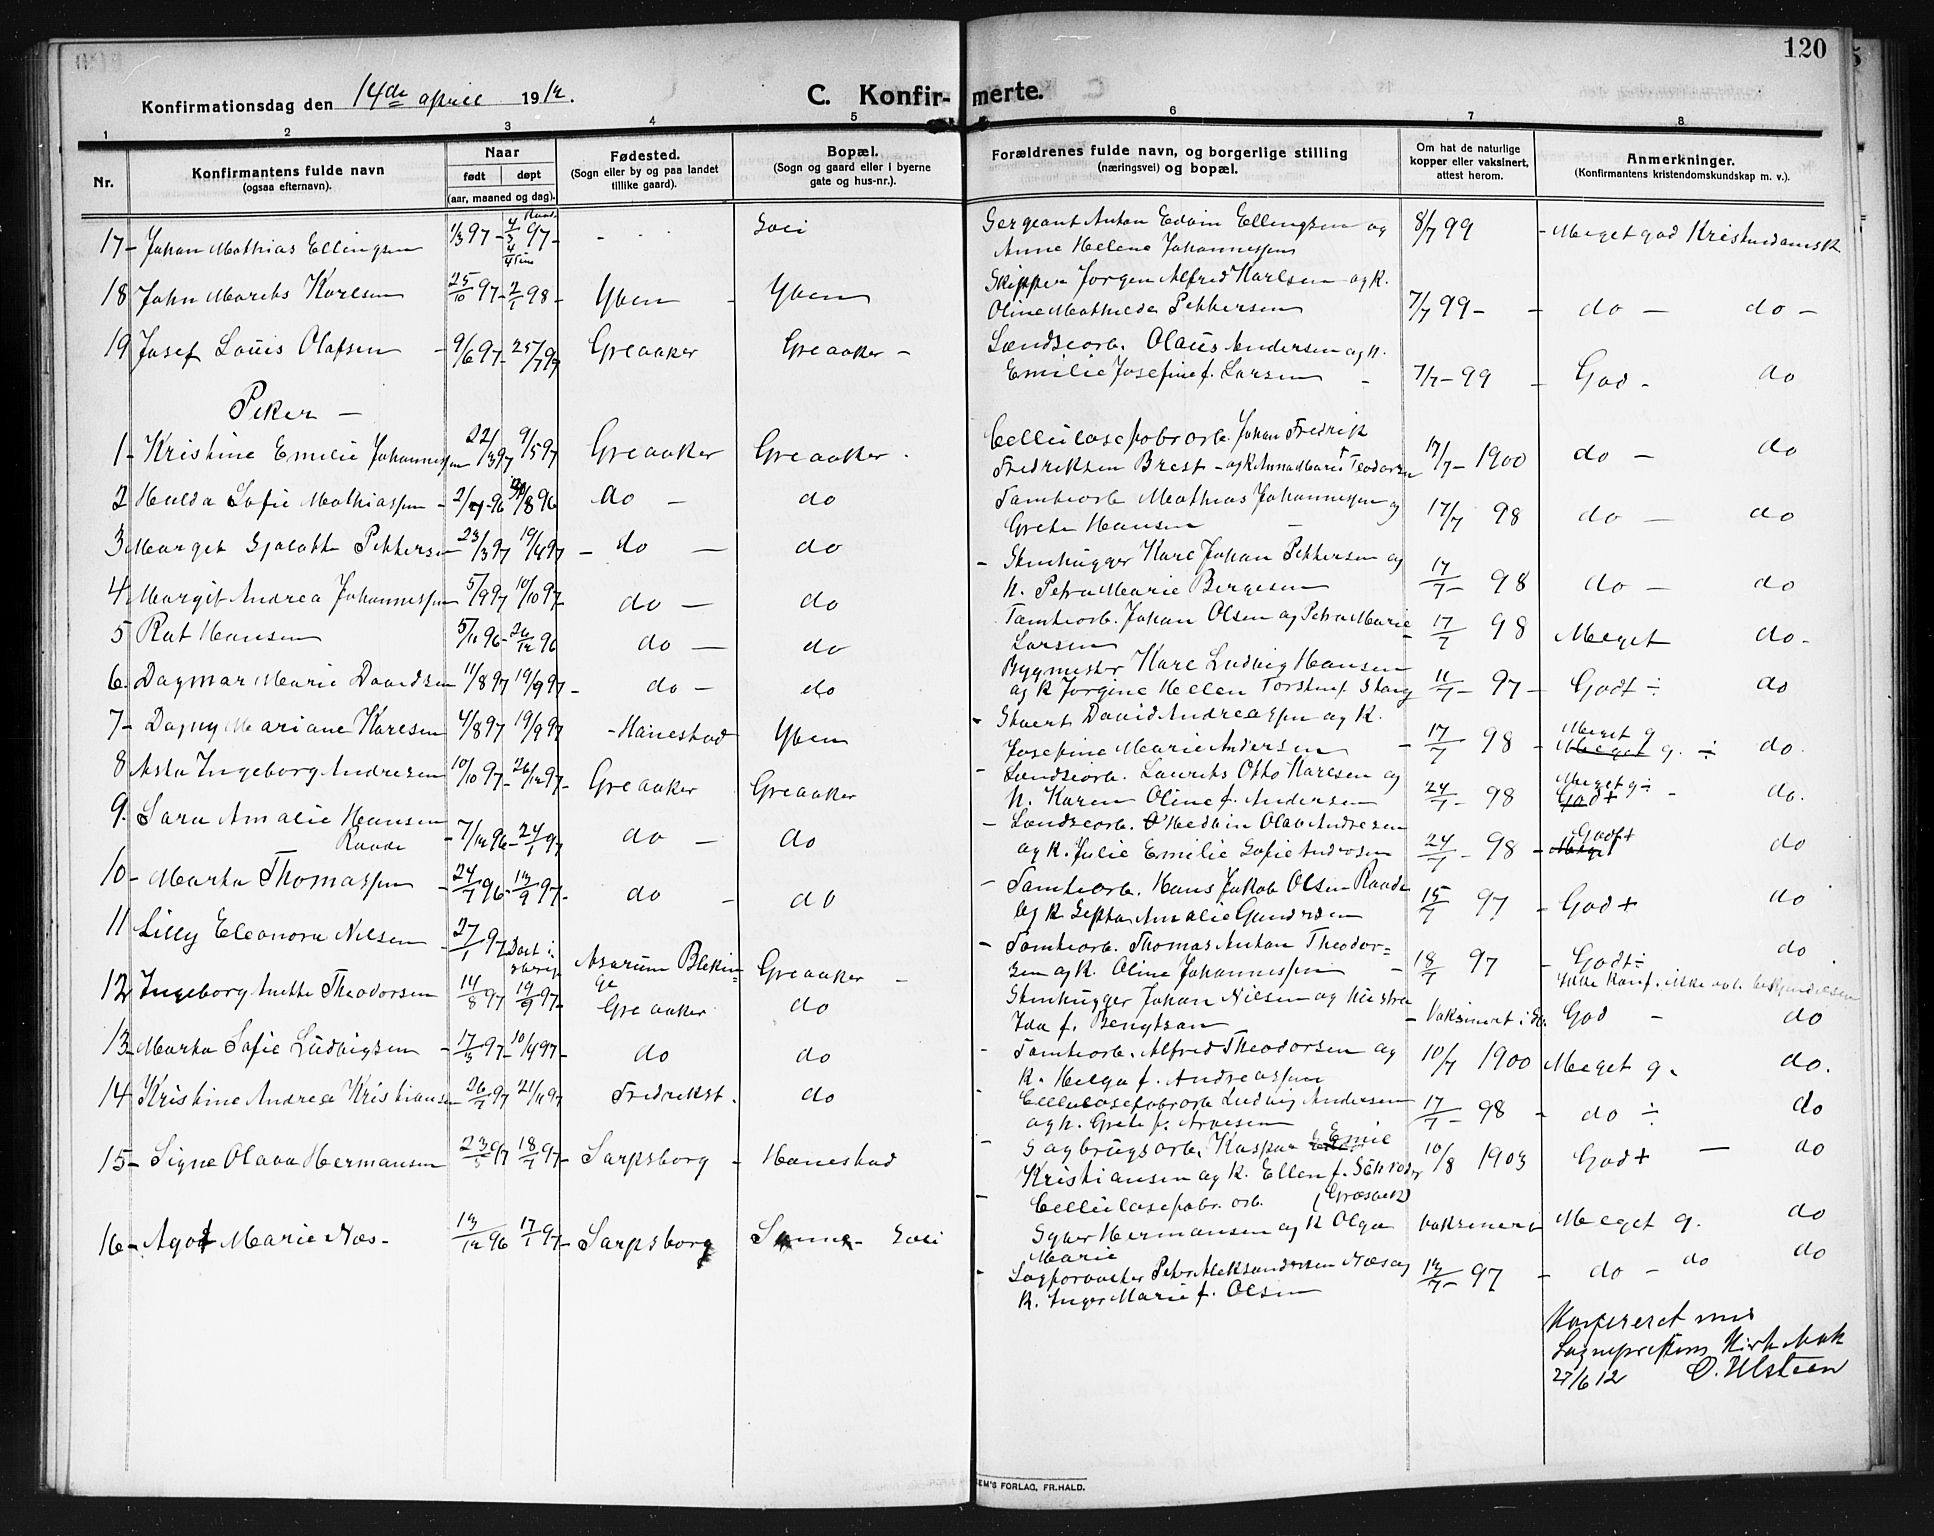 120
Konfirmationsdag den 14de april 1912.
C. Konfir- merte.
1 2 3 4 5 6 7 8
Nr.
Konfirmantens fulde navn
(ogsaa efternavn).
Naar
født døpt
(aar, maaned og dag).
Fødested.
(Sogn eller by og paa landet
tillike gaard).
Bopæl.
(Sogn og gaard eller i byerne
gate og hus-nr.).
Forældrenes fulde navn, og borgerlige stilling
(næringsvei) og bopæl.
Om hat de naturlige
kopper eller vaksinert,
attest herom.
Anmerkninger.
(Konfirmantens kristendomskundskap m. v.).
17- Johan Mathias Ellingsen 1/3 97-
Sergeant Anton Edvin Ellingsen og
Anne Helene Johannessen
8/7 99 - Meget god Kristendomsk
18 John Marits Karlsen 25/10 97- 2/1 98- Yven - Yven
Skipper Jørgen Alfred Karlsen og K.
Oline Mathilde Pettersen
7/7 99- - do - do -
19 Josef Louis Olafsen - 9/6 97- 25/7 97 Greaaker Greaaker -
Landseorb. Olaus Andersen og K.
Emilie Josefine f. Larsen -
7/7-99 - God. do
Piker -
1- Kristine Emilie Johannessen 22/3 97 9/5 97 Greaaker Greaaker.
Cellulosefabrarb. Johan Fredrik
Fredriksen Brest - og K. Anna Marie Teodorsen
17/7-1900 do - do
2 Hulda Sofie Mathiassen - 8 96 do - do
Tomtearb. Mathias Johannessen og
Grete Hansen -
17/7 98 do - do
3 Marget Pettersen 23/3 97 19/4 97 - do - do
- Stenhugger Karl Johan Pettersen og
K. Petra Marie Børgesen
17/7- 98 do - do
4 Margit Andrea Johannessen 5/9 97 10/10 97- do - do
Tomtearb. Johan Olsen og Petra Marie
Larsen
- 17/7 98 Meget do-
5 Rut Hansen 5/11 96- 26/12 96 do - do
Bygmester Karl Ludvig Hansen
og K Jørgine Hellen
11/7- 97- Godt ÷ do
6. Dagmar Marie Davidsen 11/8 97 19/9 97- do - do
- David Andreassen og K.
Josefine Marie Andersen
- 17/7 98 - Meget g ÷ do.
7- Dagny Mariane Karlsen 4/8 97 19/9 97 -Hanestad Yven
- Landseorb. Laurits Otto Karlsen og
K. Karen Oline f. Andersen
24/7- 98 Meget g ÷ - do.
8 Asta Ingeborg Andresen 10/10 97- 26/12 97- Greaaker Greaaker
- Landseorb. Hedvin Olav Andresen
og K. Julie Emilie Sofie Andersen
24/7- 98 - Godt+ do
9. Sara Amalie Hansen
Raade - 7/12 96- 24/1 97 do - do
- Tomtearb. Hans Jakob Olsen Raade
og K Amalie Gundersen
15/7 97 - God + do
10- Marta Thomassen - 24/7 96- 13/9 97- do - do
- Tomtearb. Thomas Anton Theodor=
sen og K. Oline Johannessen -
18/7 97 - Godt÷ do
11 Lilly Eleonora Nilsen - 27/1 97 Døpt i
Asarum Blekin=
ge Greaaker -
Stenhugger Johan Nilsen og hustru
Ida f. Bengtsan
- Vaksinert i God - do
12 Ingeborg Anette Theodorsen 14/8 97 19/9 97- Greaaker do
- Tomtearb. Alfred Theodorsen og
K. Helga f. Andreassen
10/7 1900 Meget g. do.
13- Marta Sofie Ludvigsen - 17/3 97- 10/4 97- do do
- Cellulosefabrarb Ludvig Andersen
og K. Grete f. Arnesen
17/7- 98 - do ÷ do
14 Kristine Andrea Kristiansen 26/7 97 21/11 97 Fredrikst. do
- Sagbrugsarb. Kaspar Emil
Kristiansen og K. Ellen f. Schrøder
(Græsvik)
10/8 1903 God + - do
15- Signe Olava Hermansen 23/5 97 18/7 97- Sarpsborg - Hanestad
- Cellulosefabr. arb.
Hermansen og K Olga
Marie
Vaksinert Meget g. do
16- Agot Marie Næs- 13/12 96 17/1 97- Sarpsborg
- Petter Aleksandersen Næs og
K. Inger Marie f. Olsen
13/7- 97 - do - do do
Konfereret med
Sogneprestens Kirkebok
27/6 12 O. Ulsteen
EM'S FORLAG, FR.HALD.